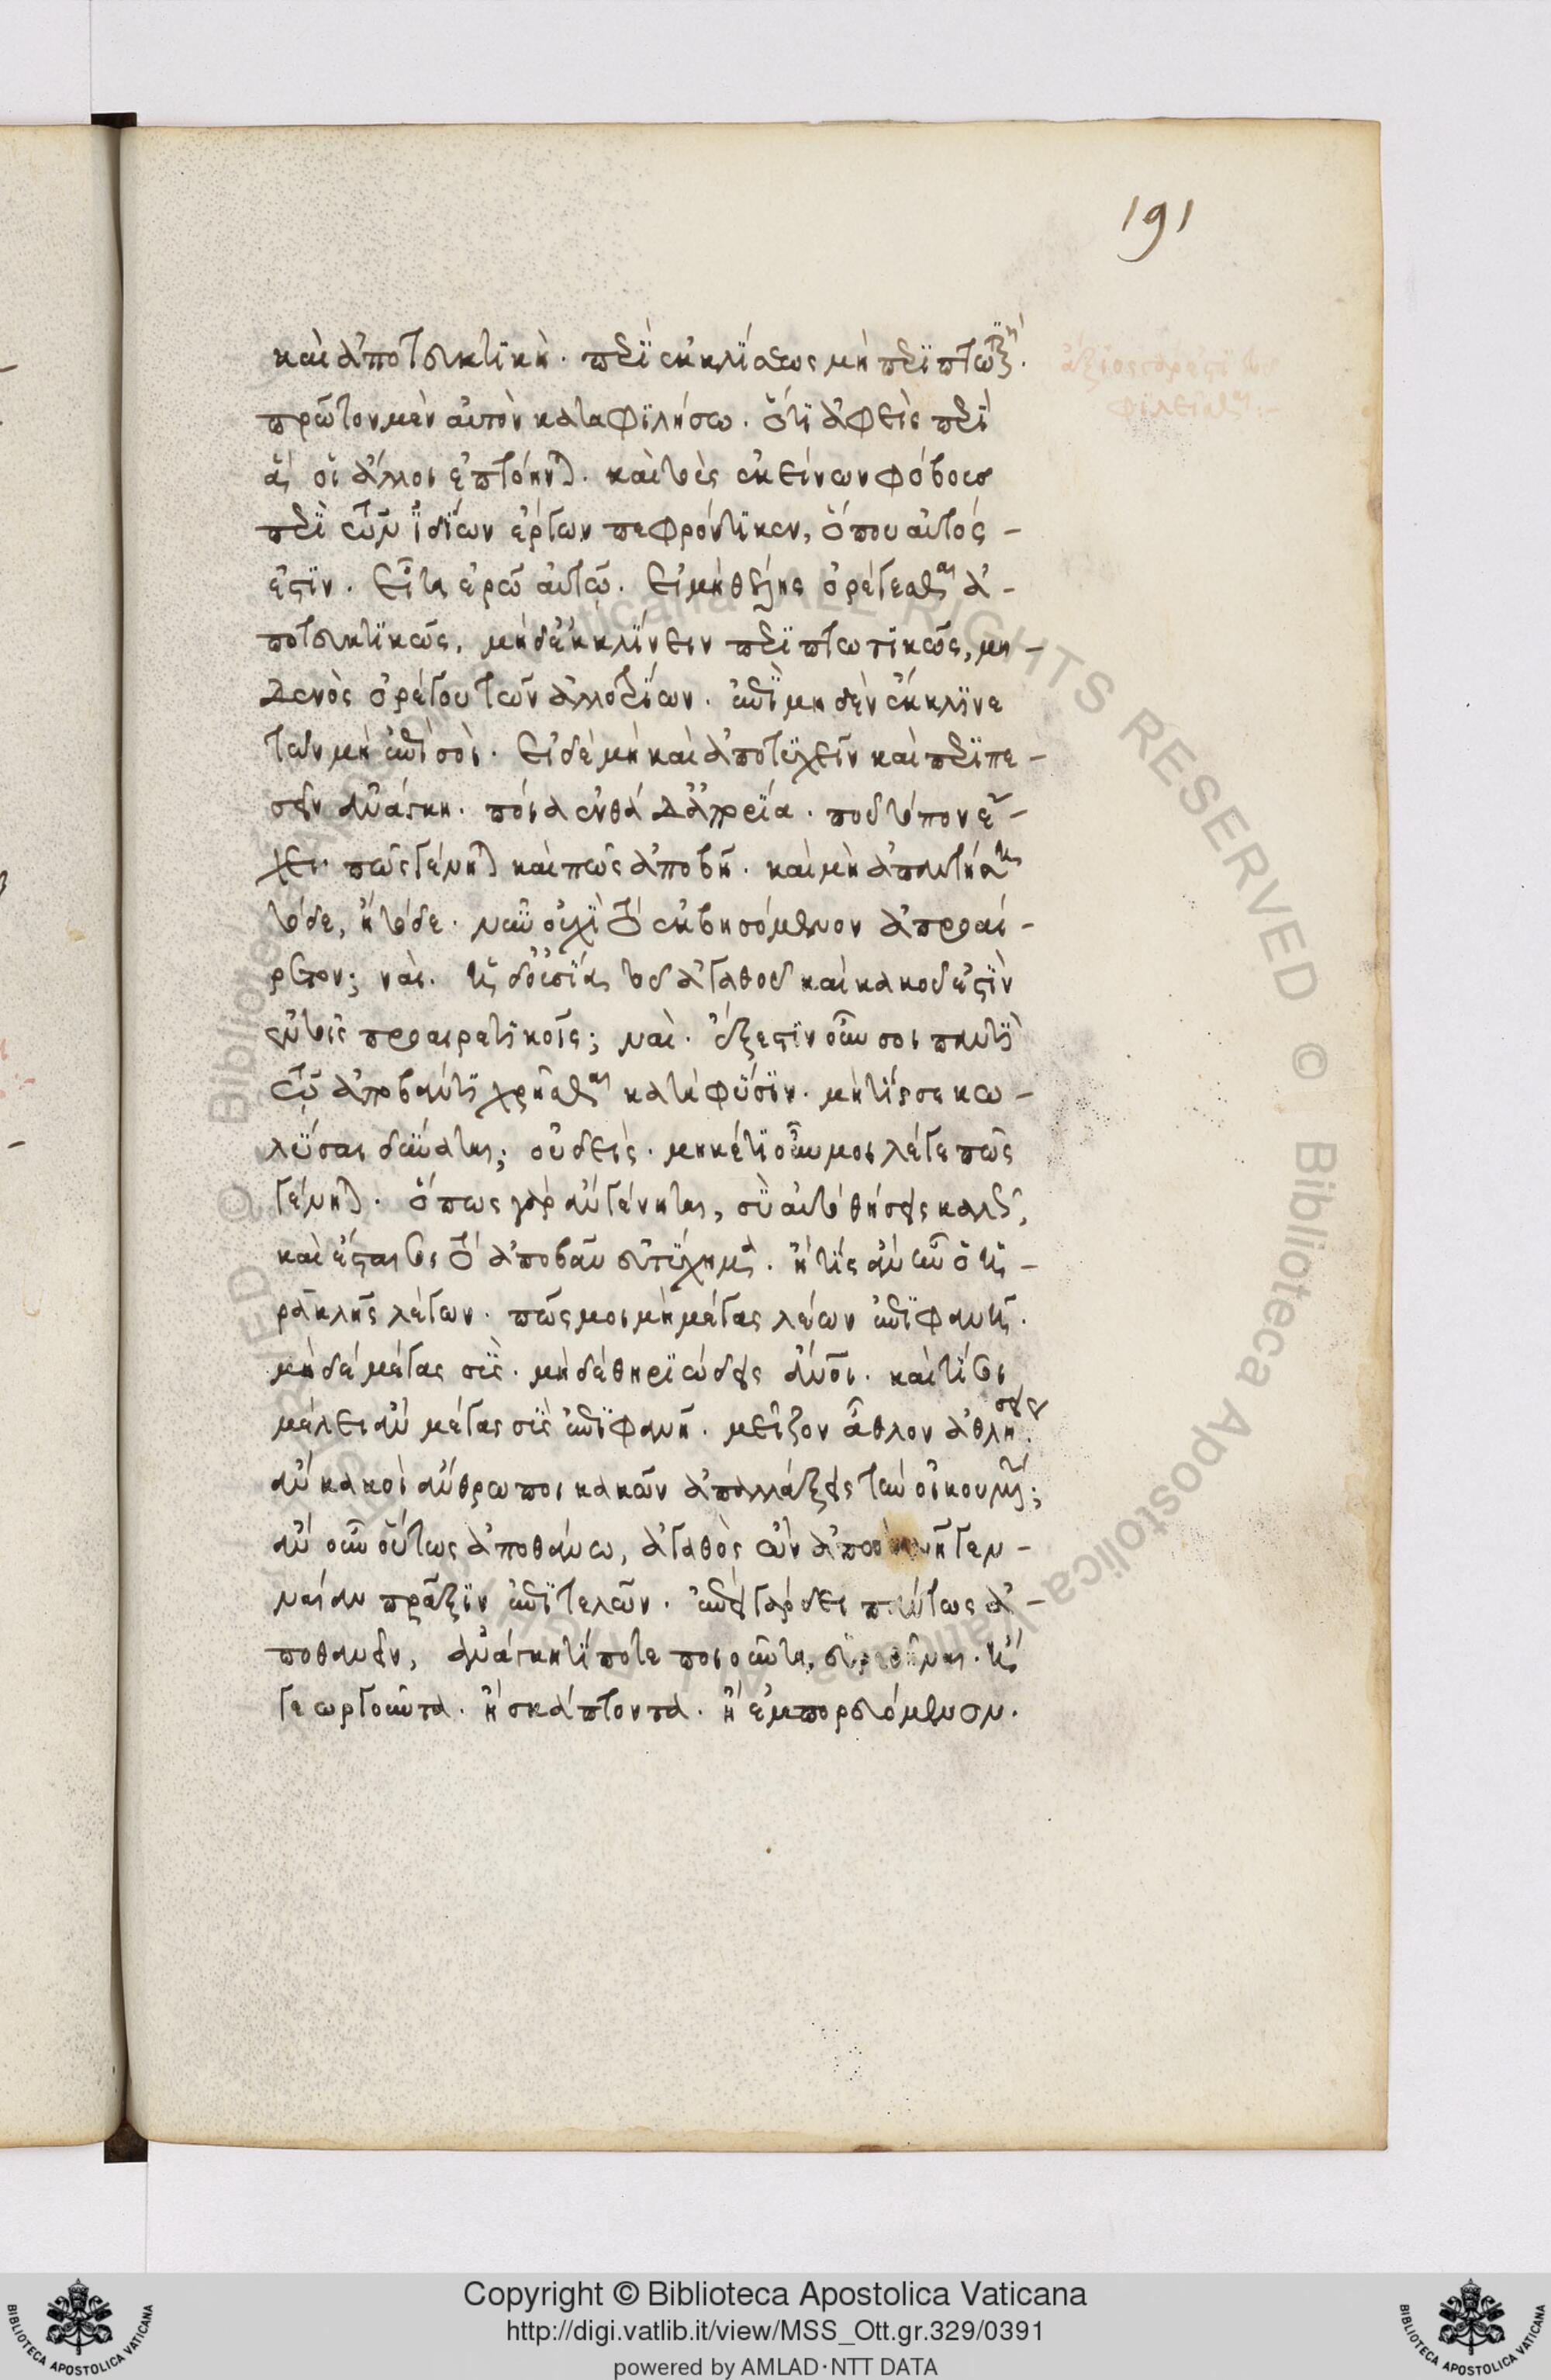 191
καὶ ἀποτευκτικὴ. περὶ ἐκκλίσεως μὴ περιπτωτικὴ.
πρῶτον μὲν αὐτὸν καταφιλήσω. ὅτι ἀφεὶς περὶ
ἃ οἱ ἄλλοι ἐπτόηνται. καὶ τοὺς ἐκείνων φόβους
περὶ τῶν ἰδίων ἔργων πεφρόντικεν, ὅπου αὐτός -
ἐστιν. εἶτα ἐρῶ αὐτῶ. εἰ μὴ θέλῃς ὀρέγεσθαι ἀ -
ποτευκτικῶς, μηδ' ἐκκλίνειν περιπτωτικῶς, μη -
δενὸς ὀρέγου τῶν ἀλλοτρίων. ἐπὶ μηδὲν ἔκκλινε
τῶν μὴ ἐπὶ σοὶ. εἰ δὲ μὴ καὶ ἀποτυχεῖν καὶ περιπε -
σεῖν ἀνάγκη. ποία ἐνθάδ' ἀπορία. ποῦ τόπον ἔ -
χει πῶς γένηται καὶ πῶς ἀποβῆ. καὶ μὴ ἀπαντήση
τόδε, ἢ τόδε. νῦν οὐχὶ τὸ ἐκβησόμενον ἀπροαί -
ρετον; ναί. ἡ δ' οὐσία τοῦ ἀγαθοῦ καὶ κακοῦ ἐστὶν
ἐν τοῖς προαιρετικοῖς; ναὶ. ἔξεστιν οὖν σοι παντὶ
τῶ ἀποβάντι χρῆσθαι κατὰ φύσιν. μή τίς σε κω -
λῦσαι δύναται; οὐδεὶς. μηκέτι οὖν μοι λέγε πῶς
γένηται. ὅπως γὰρ ἂν γένηται, σὺ αὐτὸ θήσεις καλῶς,
καὶ ἔσται σοι τὸ ἀποβὰν εὐτύχημα. ἢ τίς ἂν ἦν ὁ ἡ -
ρακλῆς λέγων. πῶς μοι μὴ μέγας λέων ἐπιφανῆ.
μηδὲ μέγας σῦς. μηδὲ θηριώδεις ἄνθρωποι. καὶ τί σοι
μέλει ἂν μέγας σῦς ἐπιφανῆ. μεῖζον ἆθλον ἀθλήσεις.
ἂν κακοὶ ἄνθρωποι κακῶν ἀπαλλάξεις τὴν οἰκουμένην;
ἂν οὖν οὕτως ἀποθάνω, ἀγαθὸς ὢν ἀποθανῆ γεν -
ναίαν πρᾶξιν ἐπιτελῶν. ἐπεὶ γὰρ δεῖ πάντως ἀ -
ποθανεῖν, ἀνάγκη τί ποτε ποιοῦντα, εὑρεθῆναι. ἢ
γεωργοῦντα. ἢ σκάπτοντα. ἢ ἐμπορευόμενον.
Copyright © Biblioteca Apostolica Vaticana
http://digi.vatlib.it/view/MSS_Ott.gr.329/0391
powered by AMLAD·NTT DATA